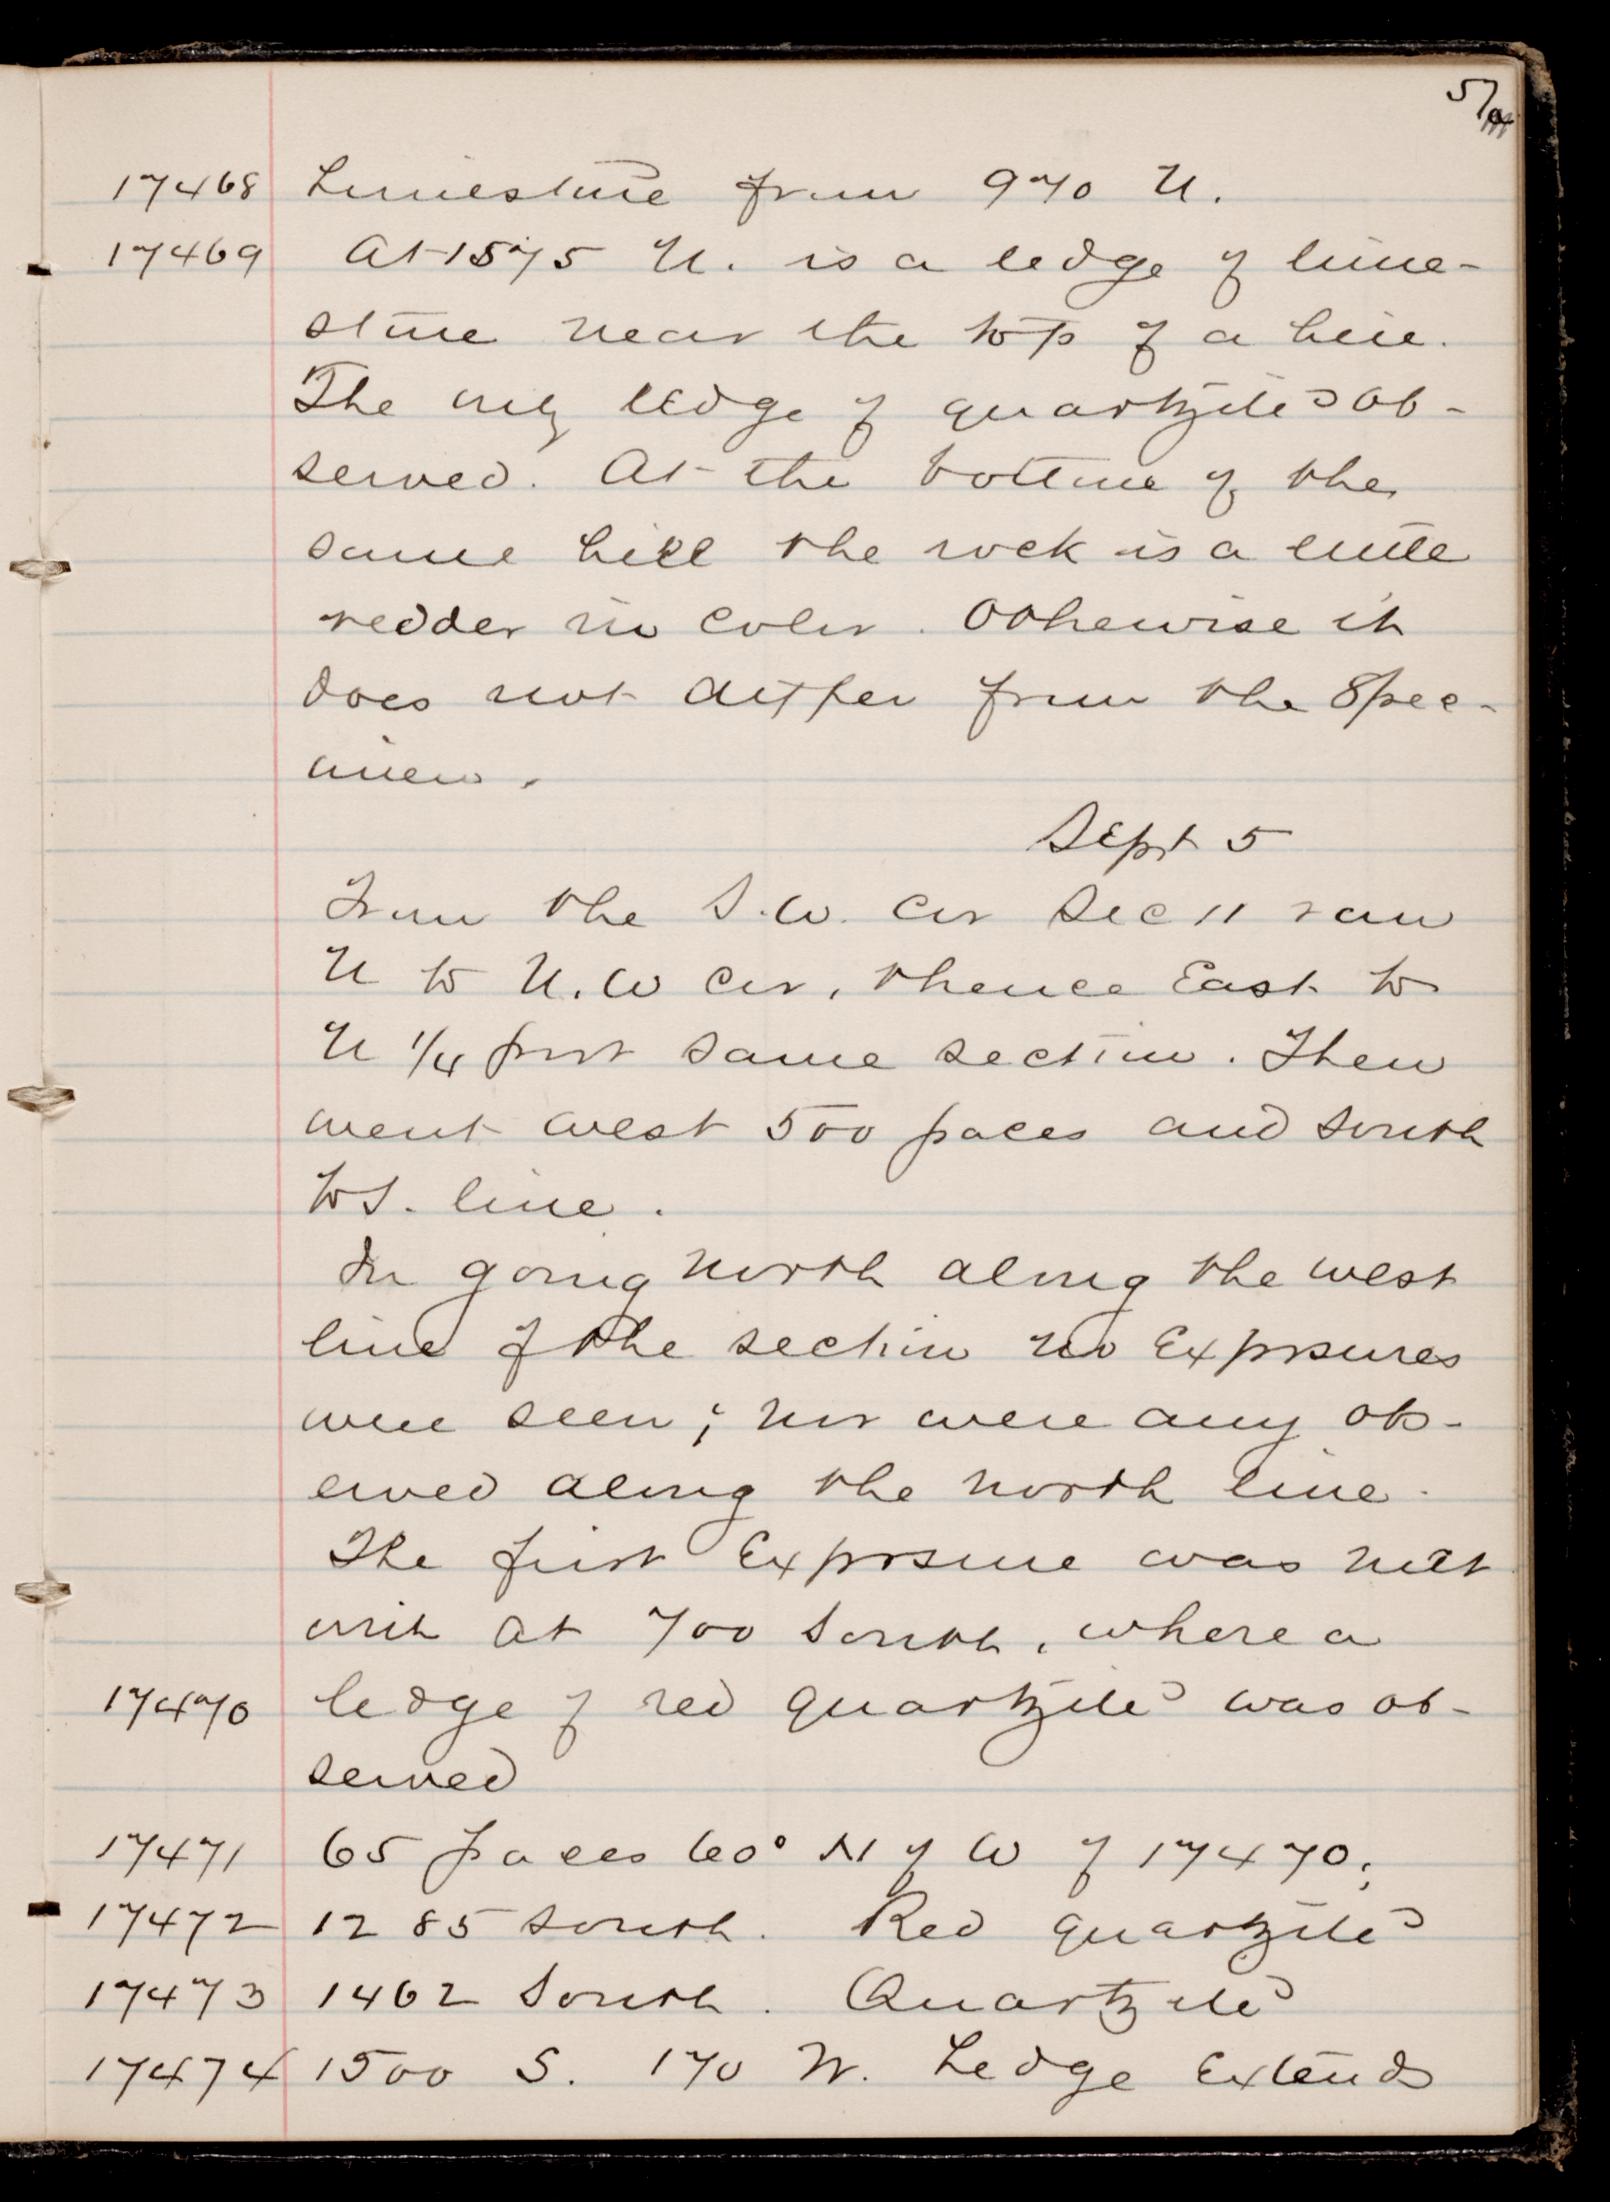 57
17468 Limestone from 970 N.
17469 At 1575 N. is a ledge of lime-
stone near the top of a hill.
The only ledge of quartzite ob-
served. At the bottom of the
same hill the rock is a little
redder in color. Othewise it
does not differ from the spec-
imen.
Sept 5
From the S.W. Cor Sec 11 ran
N to N.W Cor, thence East to
N 1/4 post same section. Then
went west 500 paces and south
to S. line.
In going north along the west
line of the section no Exposures
were seen; nor were any ob-
erved along the north line.
The first Exposure was met
with at 700 South, where a
17470 ledge of red quartzite was ob-
served
17471 65 paces 60° N of W of 17470;
17472 1285 south. Red quartzite
17473 1462 South. Quartzite
17474 1500 S. 170 W. Ledge Extends